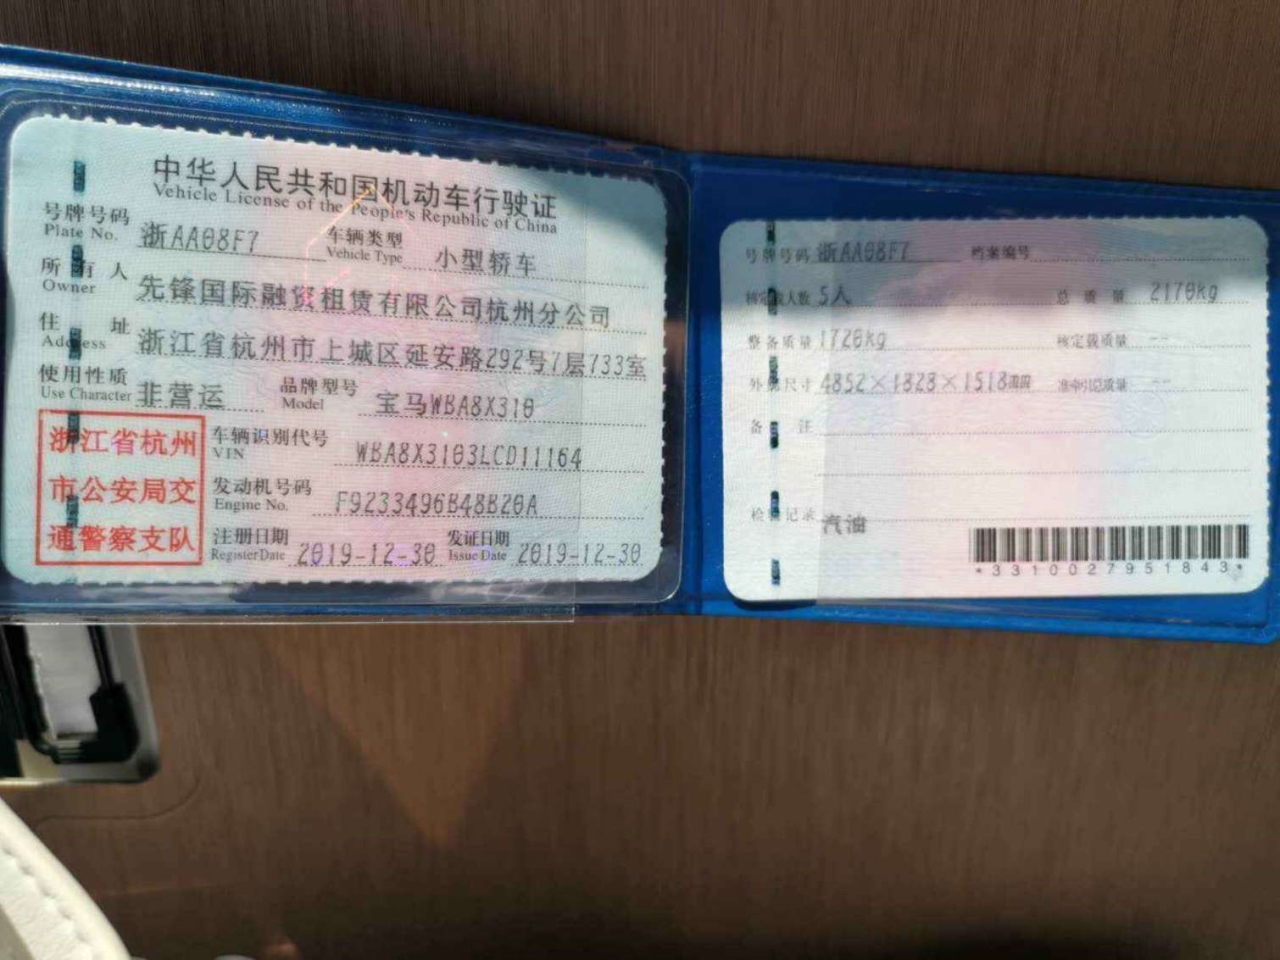 中华人民共和国机动车行驶证
Vehicle License of the People's Republic of China
号牌号码 浙AA08F7 车辆类型 小型轿车
Plate No. Vehicle Type
所有人 先锋国际融资租赁有限公司杭州分公司
Owner
住址 浙江省杭州市上城区延安路292号7层733室
Address
使用性质 非营运 品牌型号 宝马WBA8X310
Use Character Model
浙江省杭州
市公安局交
通警察支队
车辆识别代号 WBA8X3103LCD11164
VIN
发动机号码 F9233496B48B20A
Engine No.
注册日期 2019-12-30 发证日期 2019-12-30
Register Date Issue Date
号牌号码 浙AA08F7 档案编号
核定载人数 5人 总质量 2170kg
整备质量 1720kg 核定载质量 --
外廓尺寸 4852×1828×1518mm 准牵引总质量 --
备注
检验记录 汽油
*3310027951843*